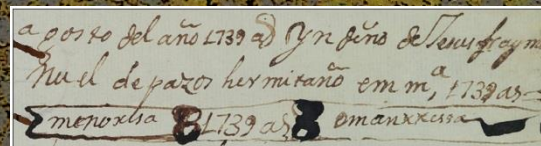 agosto del año 1739 as Yn diño de Jesus fray m
Nuel de pazos hermitaño em mª, 1739 as
menoresa 1739 as emanrressa